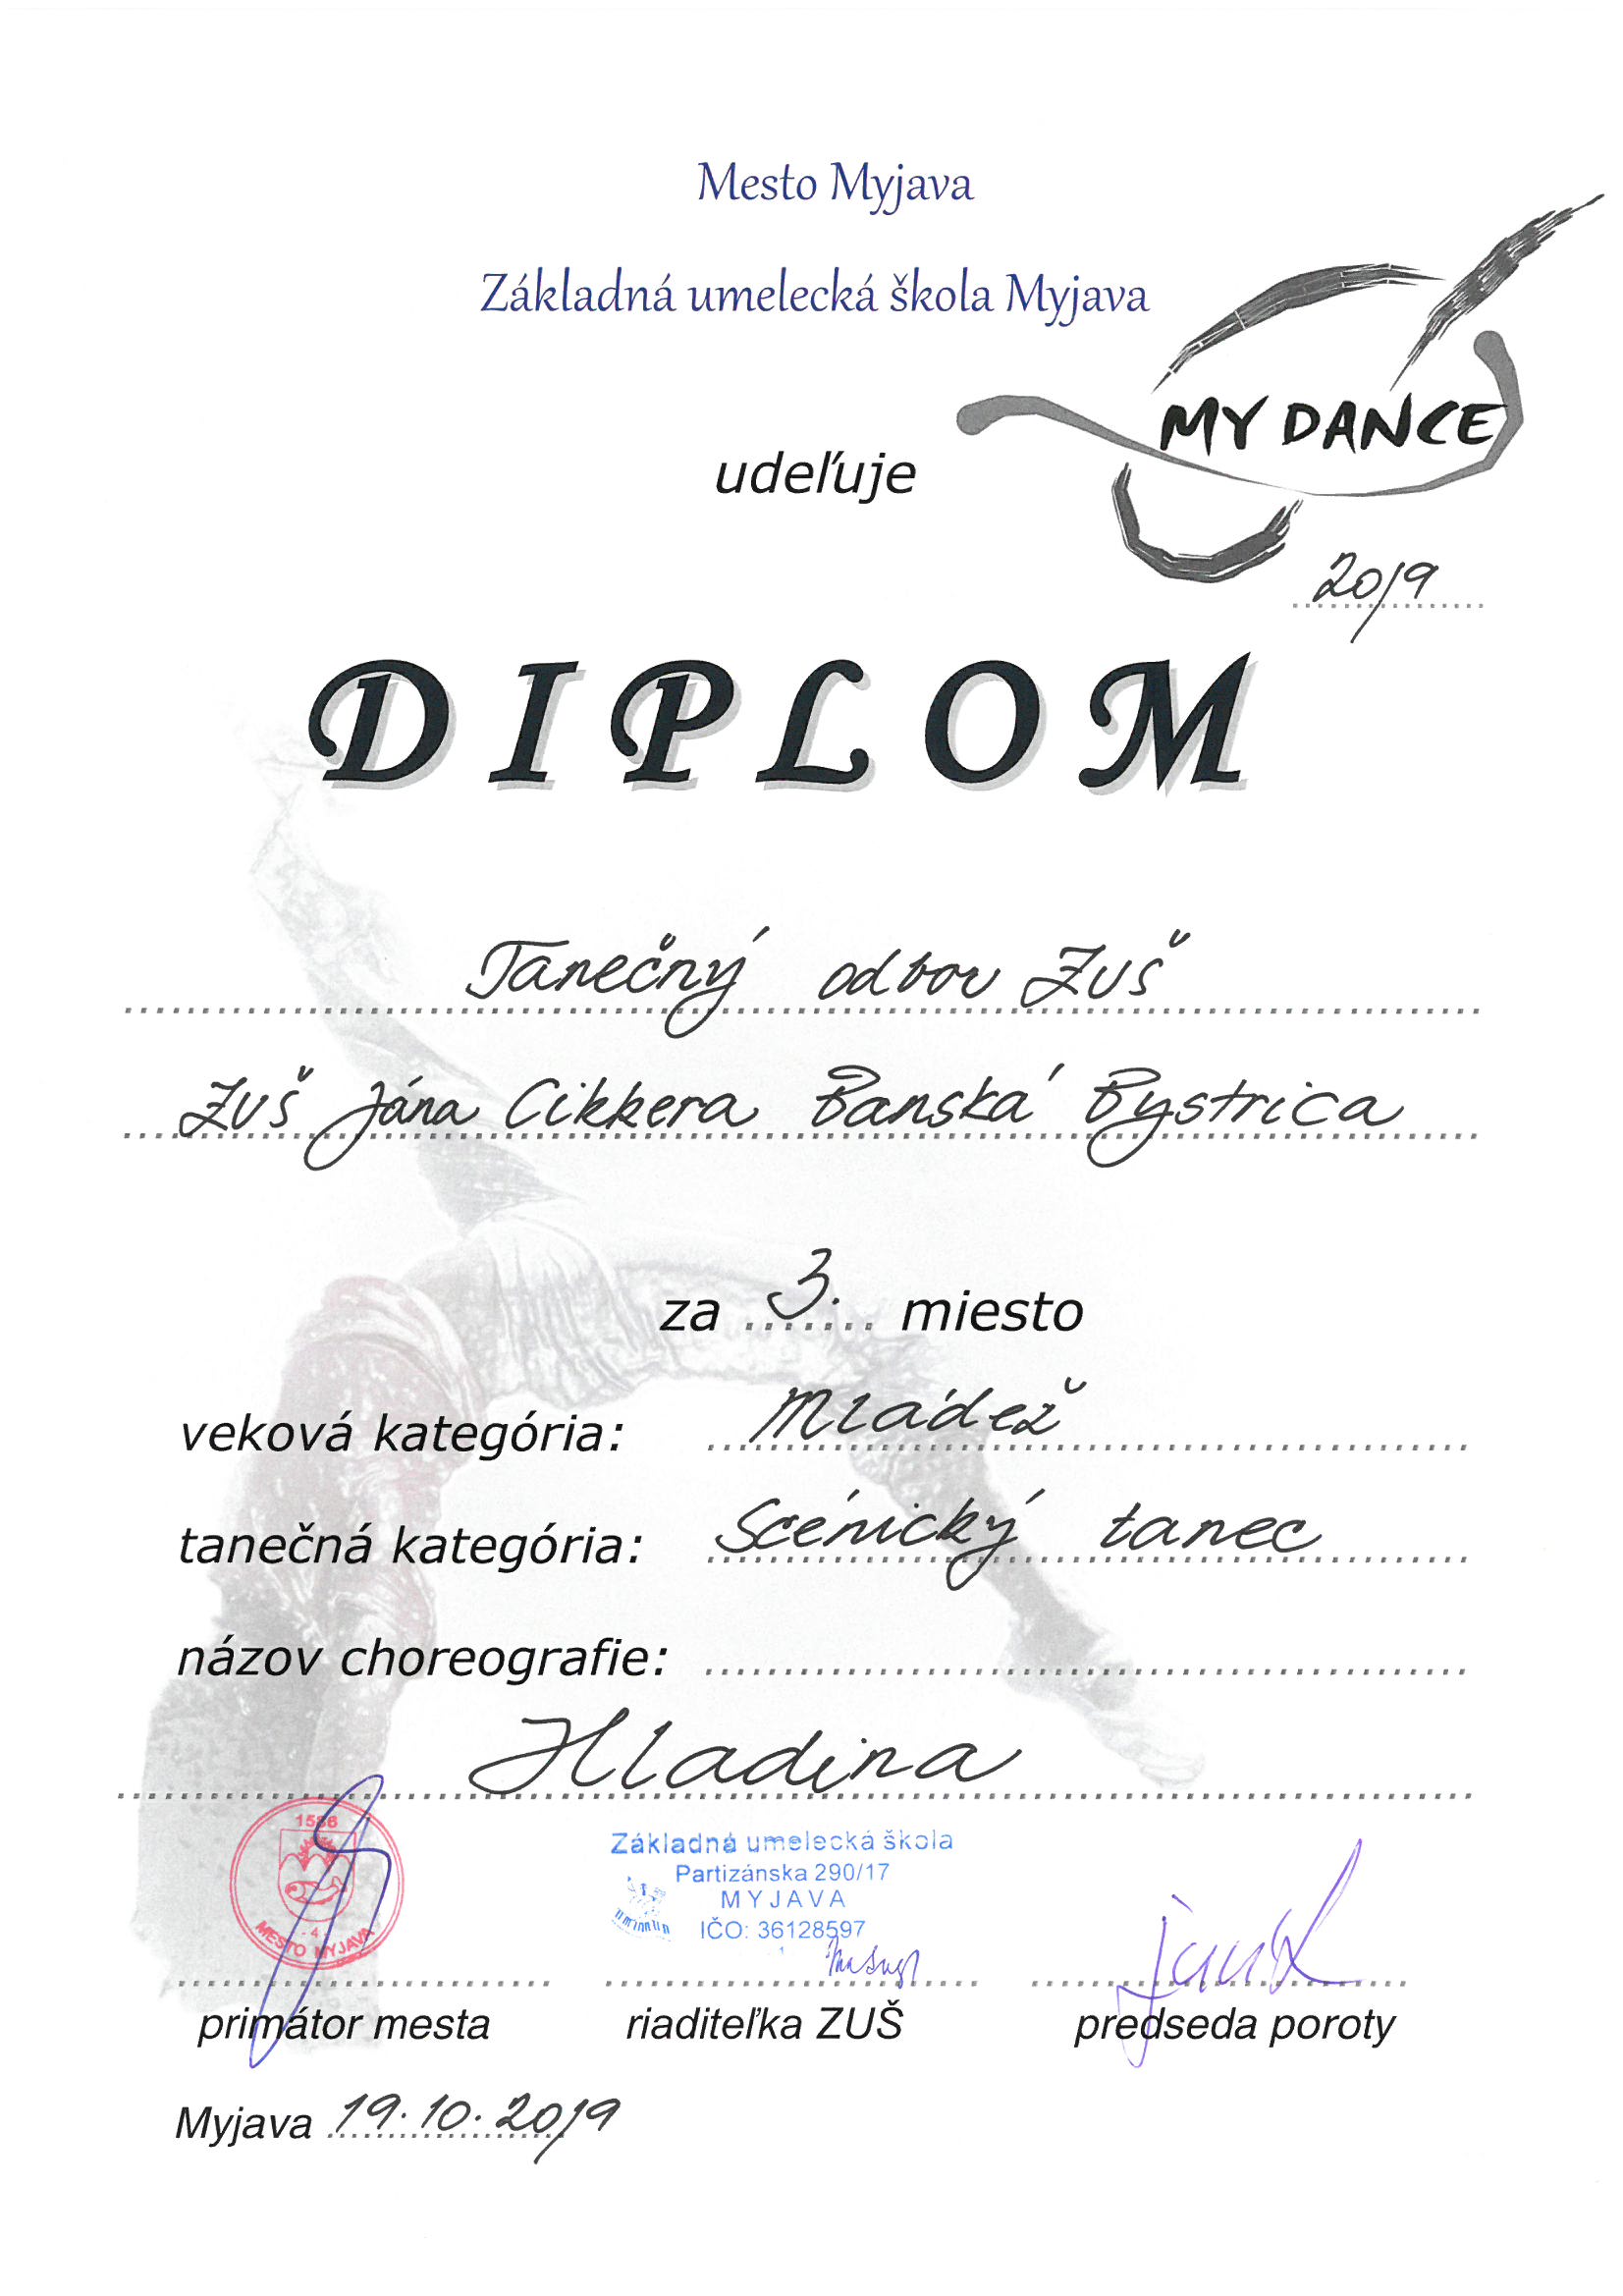 Mesto Myjava
Základná umelecká škola Myjava
MY DANCE
udeľuje
2019
DIPLOM
Tanečný odbor ZUŠ
ZUŠ Jána Cikkera Banská Bystrica
za 3. miesto
veková kategória: Mládež
tanečná kategória: Scénický tanec
názov choreografie:
Hladina
1586
MESTO MYJAVA
- 4 -
Základná umelecká škola
Partizánska 290/17
MYJAVA
IČO: 36128597
1
primátor mesta riaditeľka ZUŠ predseda poroty
Myjava 19.10.2019